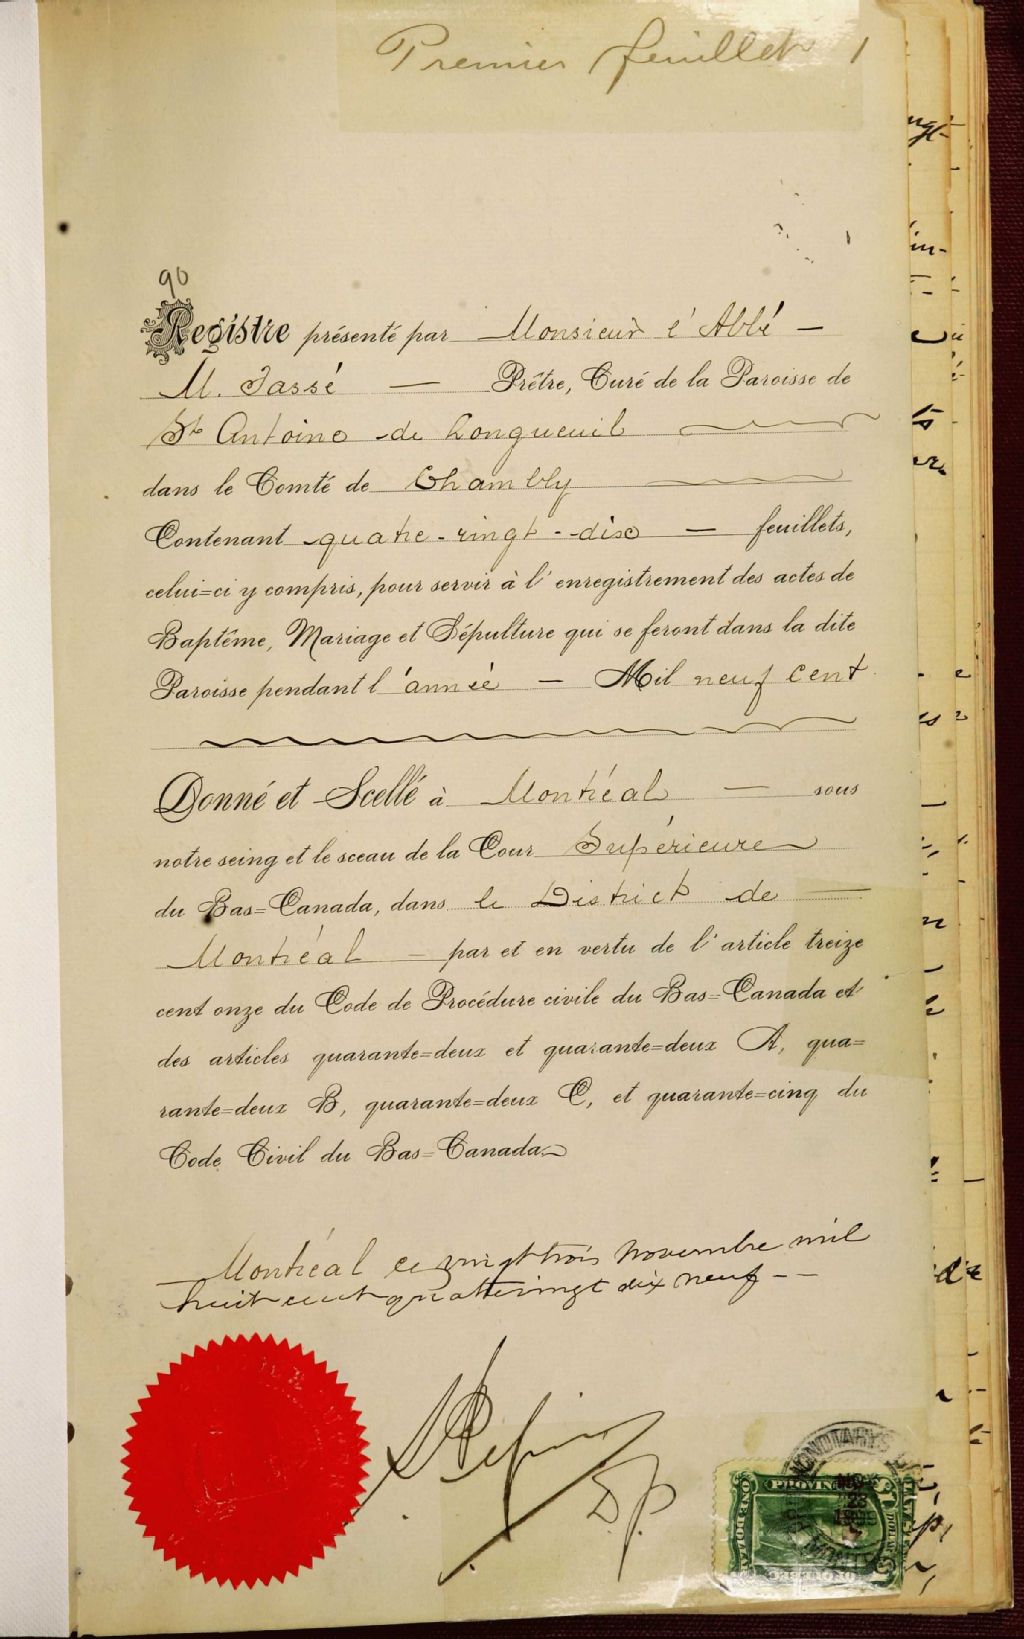 Premier feuillet 1
90
Registre présenté par Monsieur l'Abbé —
M. Tassé — Prêtre, Curé de la Paroisse de
St Antoine de Longueuil
dans le Comté de Chambly
Contenant quatre-vingt-dix — feuillets,
celui=ci y compris, pour servir à l'enregistrement des actes de
Baptême, Mariage et Sépulture qui se feront dans la dite
Paroisse pendant l'année — Mil neuf cent
Donné et Scellé à Montréal — sous
notre seing et le sceau de la Cour Supérieure
du Bas=Canada, dans le District de —
Montréal — par et en vertu de l'article treize
cent onze du Code de Procédure civile du Bas=Canada et
des articles quarante=deux et quarante=deux A, qua=
rante=deux B, quarante=deux C, et quarante=cinq du
Code Civil du Bas=Canada.
— Montréal ce vingt trois novembre mil
huit cent quatrevingt dix neuf — —
D.P.